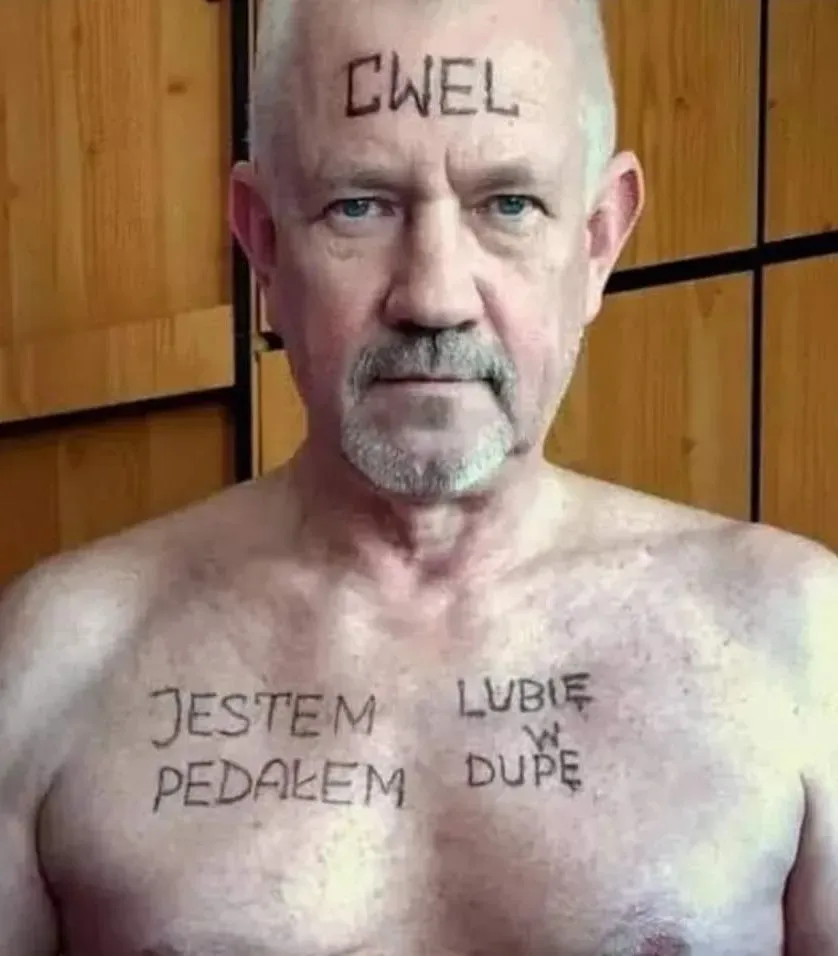 CWEL
JESTEM
PEDAŁEM
LUBIĘ
W
DUPĘ